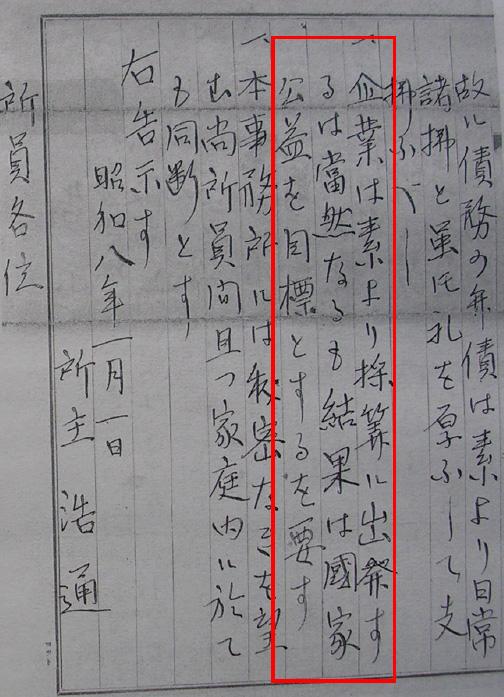 故に債務の弁償は素より日常
諸拂と虽も礼を厚ふして支
拂ふべし
一、企業は素より採算に出発す
るは當然なるも結果は國家
公益を目標とするを要す
一、本事務所には秘密なきを望
む尚所員間且つ家庭内に於て
も同断とす
右告示す
昭和八年一月一日
所主 浩通
所員各位